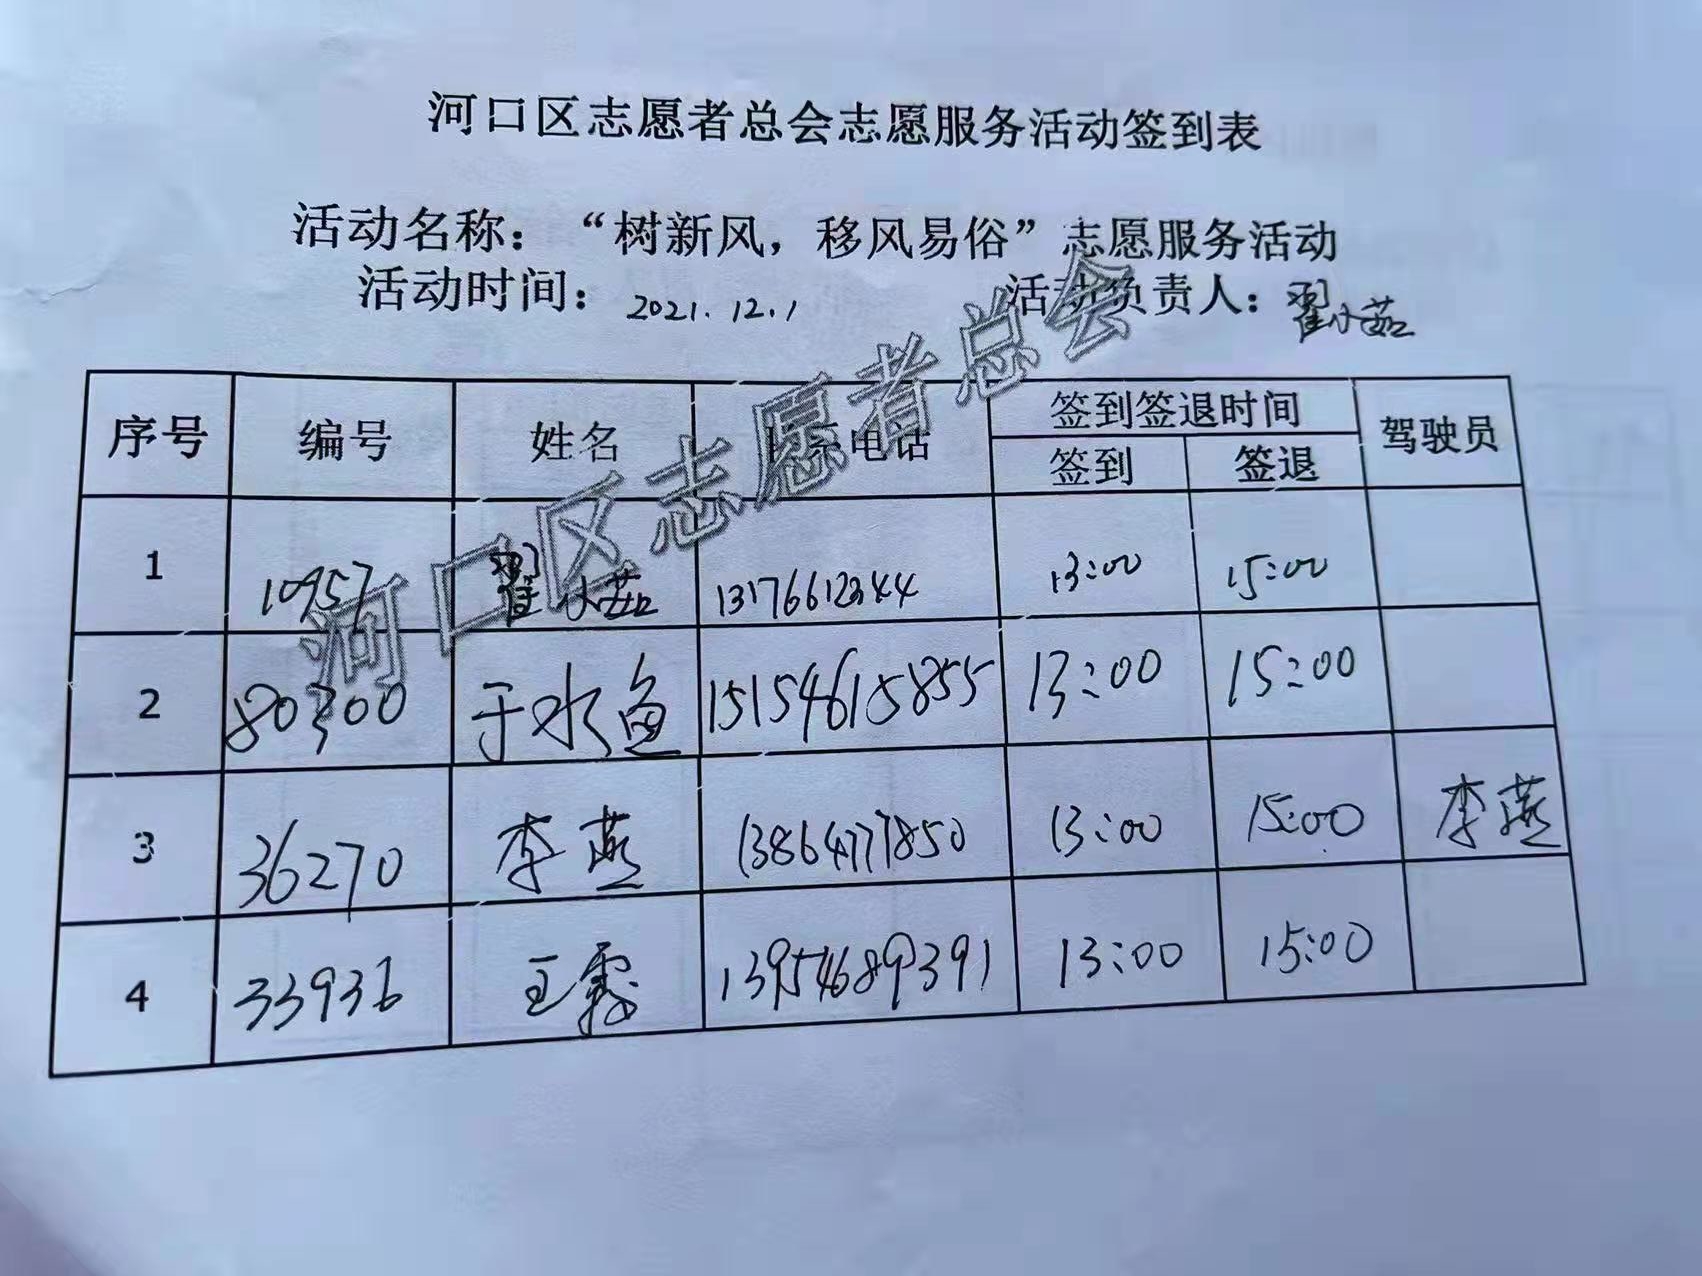 河口区志愿者总会志愿服务活动签到表
活动名称：“树新风，移风易俗”志愿服务活动
活动时间：2021.12.1 活动负责人：翟小茹
序号 编号 姓名 联系电话 签到签退时间 驾驶员
签到 签退
1 10957 翟小茹 13176612344 13:00 15:00
2 80300 于水鱼 15154615855 13:00 15:00
3 36270 李燕 13864777850 13:00 15:00 李燕
4 33936 王霞 13954689391 13:00 15:00
河口区志愿者总会